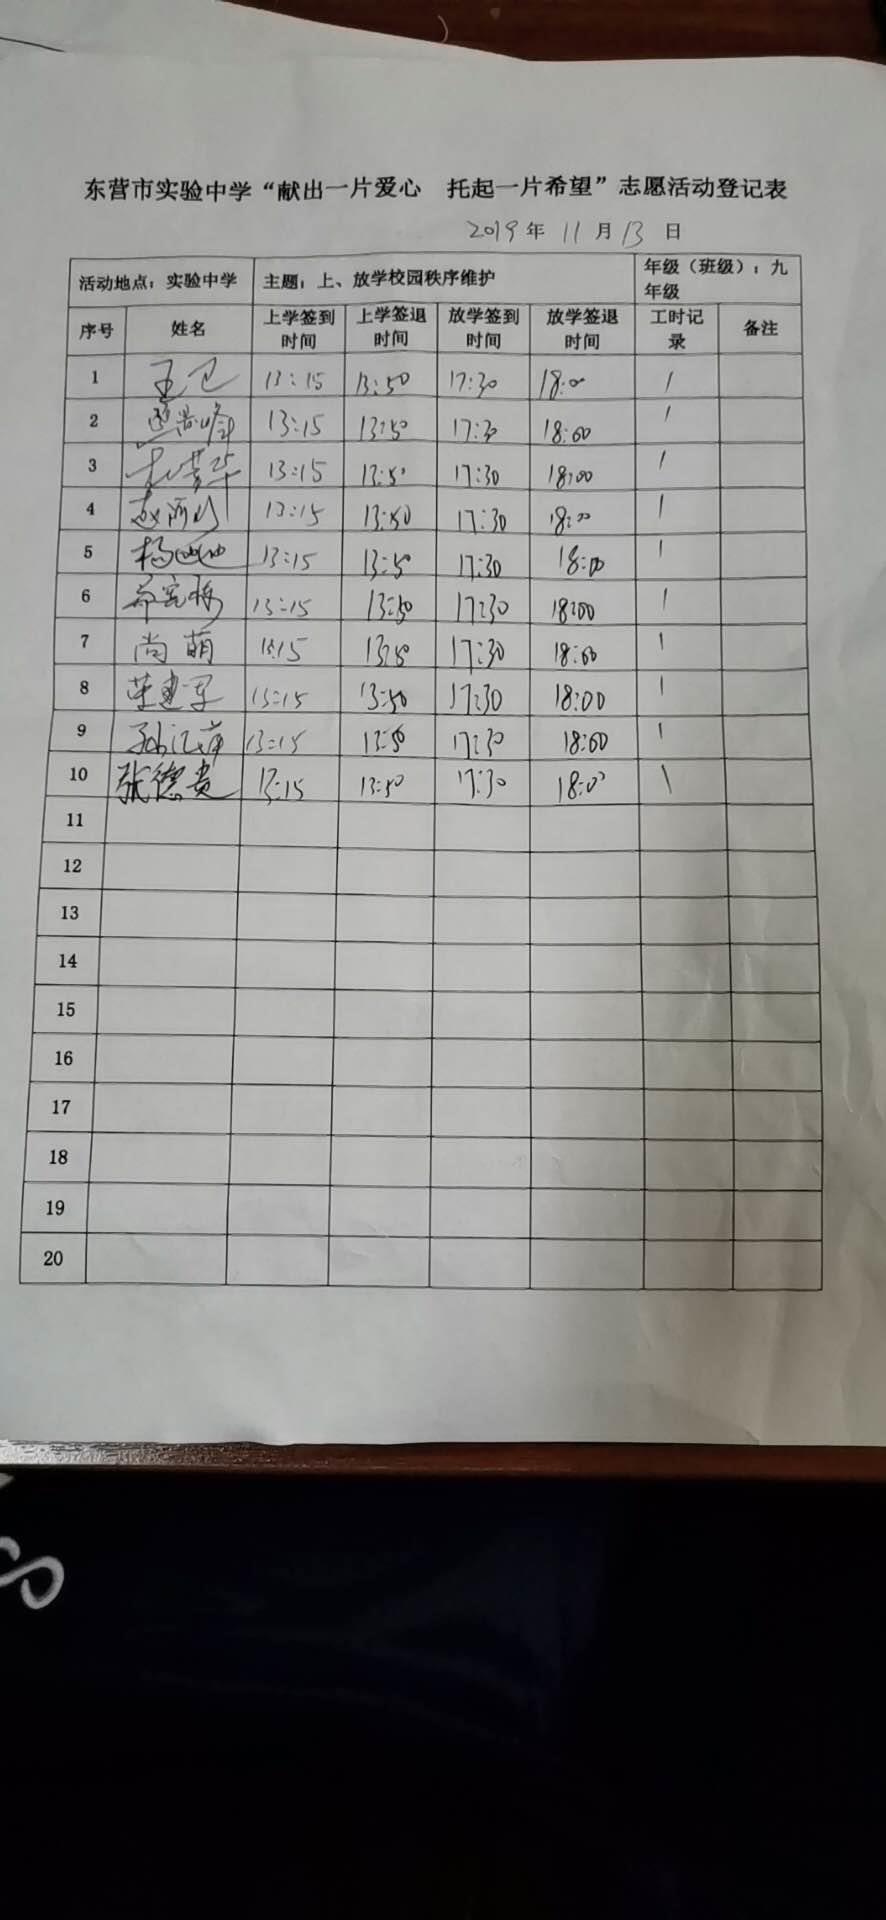 东营市实验中学“献出一片爱心 托起一片希望”志愿活动登记表
2019年11月13日
活动地点：实验中学 主题：上、放学校园秩序维护 年级（班级）：九年级
序号 姓名 上学签到时间 上学签退时间 放学签到时间 放学签退时间 工时记录 备注
1 王卫 13:15 13:50 17:30 18:00 1
2 13:15 13:50 17:30 18:00 1
3 13:15 13:50 17:30 18:00 1
4 13:15 13:50 17:30 18:00 1
5 杨 13:15 13:50 17:30 18:00 1
6 13:15 13:50 17:30 18:00 1
7 尚萌 13:15 13:50 17:30 18:00 1
8 荣建军 13:15 13:50 17:30 18:00 1
9 孙江萍 13:15 13:50 17:30 18:00 1
10 张德贵 13:15 13:50 17:30 18:00 1
11
12
13
14
15
16
17
18
19
20